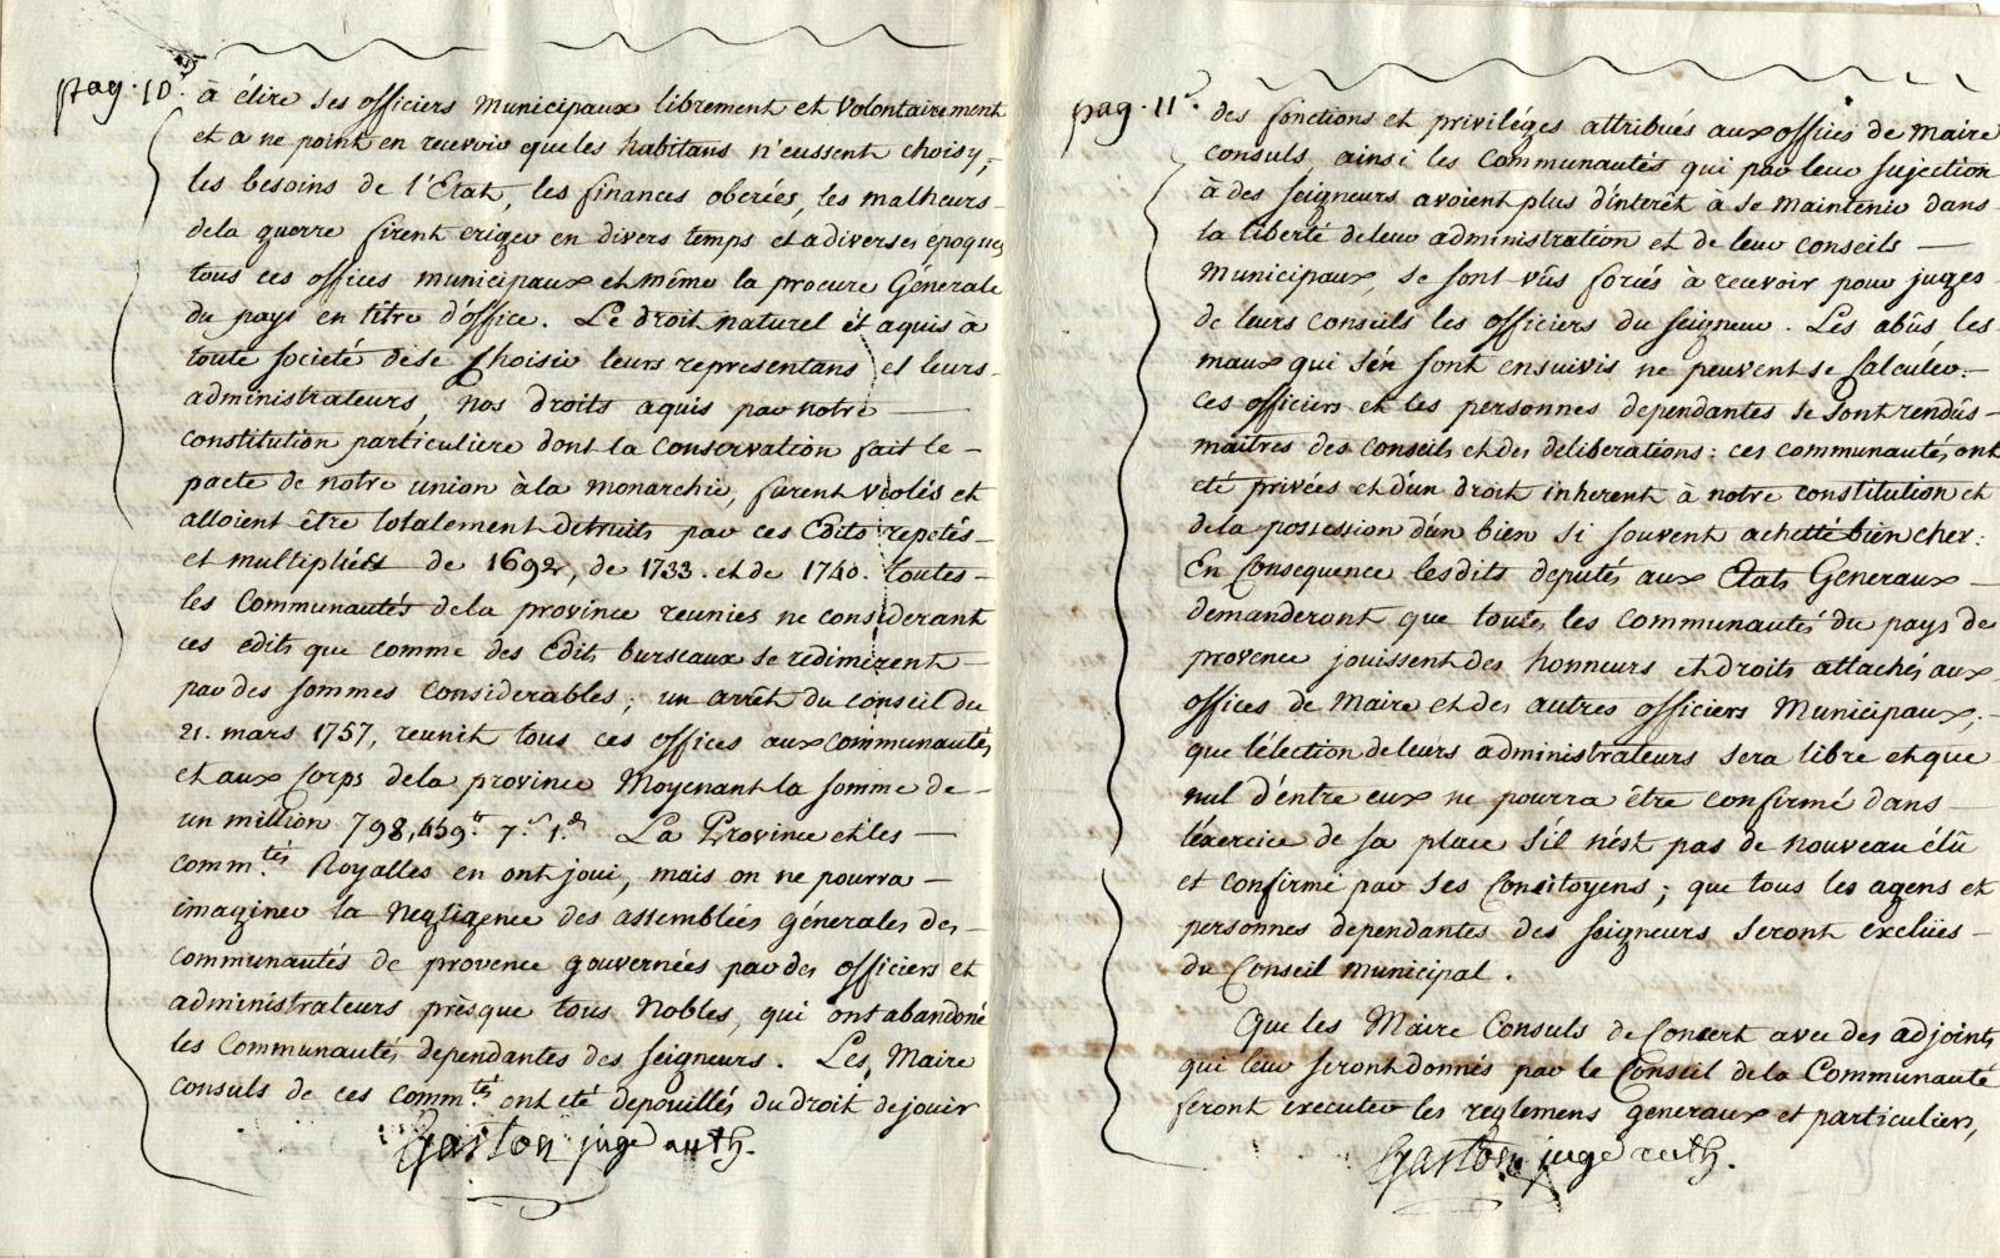 pag. 10.e
à élire ses officiers municipaux librement et volontairement
et a ne point en recevoir que les habitans n'eussent choisy,
les besoins de l'Etat, les finances oberées, les malheurs
de la guerre firent eriger en divers temps et a diverses époques
tous ces offices municipaux et même la procure Génerale
du pays en titre d'office. Le droit naturel et aquis à
toute societé de se choisir leurs representans et leurs
administrateurs, nos droits aquis par notre
constitution particuliere dont la conservation fait le
pacte de notre union à la monarchie, furent violés et
alloient être totalement detruits par ces Edits repetés
et multipliés de 1692, de 1733. et de 1740. toutes
les Communautés de la province reunies ne considerant
ces edits que comme des Edits burseaux se redimerent
par des sommes considerables; un arrêt du conseil du
21. mars 1757, reunit tous ces offices aux communautés
et aux corps de la province moyenant la somme de
un million 798,459.tt 7.s 1.d La Province et les
comm.tés Royalles en ont joui, mais on ne pourra
imaginer la negligence des assemblées génerales des
communautés de provence gouvernées par des officiers et
administrateurs prèsque tous Nobles, qui ont abandoné
les Communautés dependantes des seigneurs. Les Maire
consuls de ces comm.tés ont eté depouillés du droit de jouir
Gaston juge auth.
pag. 11.e
des fonctions et priviléges attribués aux offices de maire
consuls, ainsi les communautés qui par leur sujection
à des seigneurs avoient plus d'interêt à se maintenir dans
la liberté de leur administration et de leur conseils
municipaux, se sont vûs forcés à recevoir pour juges
de leurs conseils les officiers du seigneur. Les abûs les
maux qui s'én sont ensuivis ne peuvent se calculer.
ces officiers et les personnes dependantes se sont rendûs
maîtres des conseils et des deliberations: ces communautés ont
eté privées et d'un droit inherent à notre constitution et
de la possession d'un bien si souvent achetté bien cher:
En Consequence lesdits deputés aux Etats Generaux
demanderont que toutes les communautés du pays de
provence jouissent des honneurs et droits attachés aux
offices de Maire et des autres officiers Municipaux;
que l'élection de leurs administrateurs sera libre et que
nul d'éntre eux ne pourra être confirmé dans
l'éxercice de sa place s'il n'ést pas de nouveau élû
et confirmé par ses Concitoyens; que tous les agens et
personnes dependantes des seigneurs seront exclües
du Conseil municipal.
Que les Maire Consuls de Concert avec des adjoints
qui leur seront donnés par le Conseil de la Communauté
feront executer les reglemens generaux et particuliers,
Gaston juge auth.